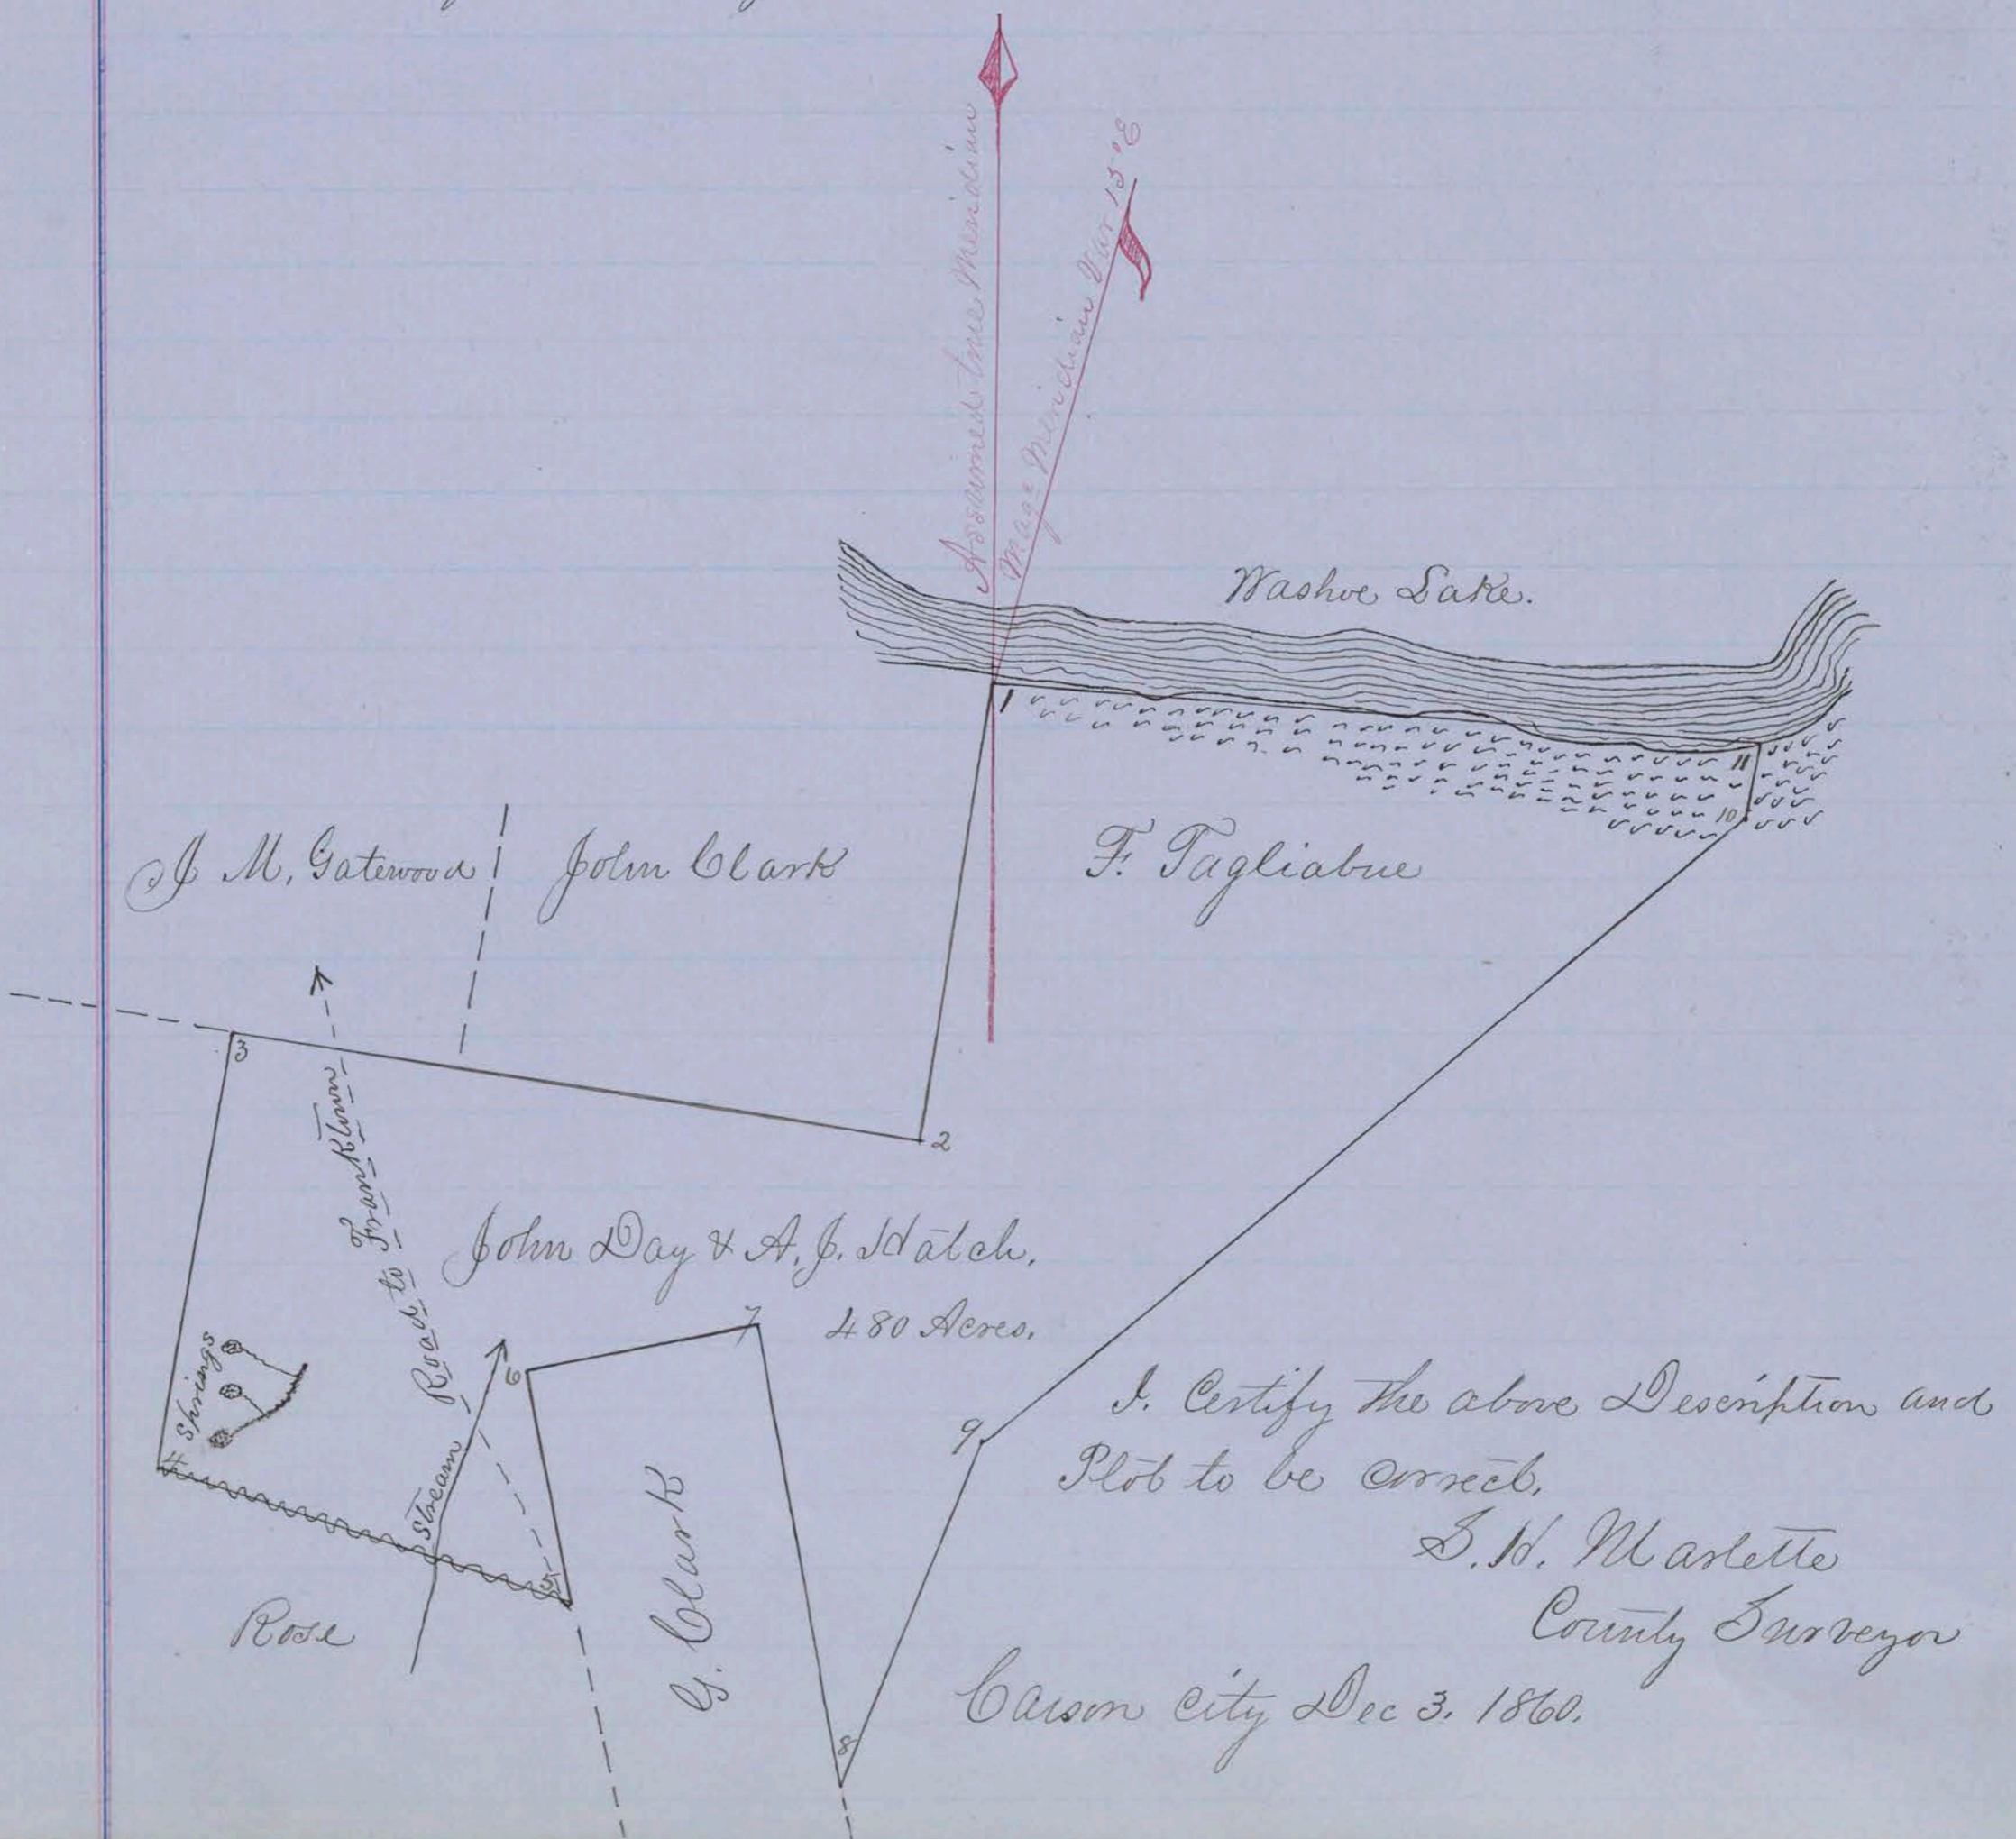 Assumed true Meridian
Mage Meridian Var 15° E
Washoe Lake.
1
11
10
J M. Gatewood
John Clark
F. Tagliabue
3
2
Road to Franktown
John Day & A. J. Hatch.
480 Acres.
7
6
Springs
4
Stream
5
9
G. Clark
8
Rose
I. Certify the above Description and
Plot to be correct.
S. H. Marlette
County Surveyor
Carson City Dec 3. 1860.